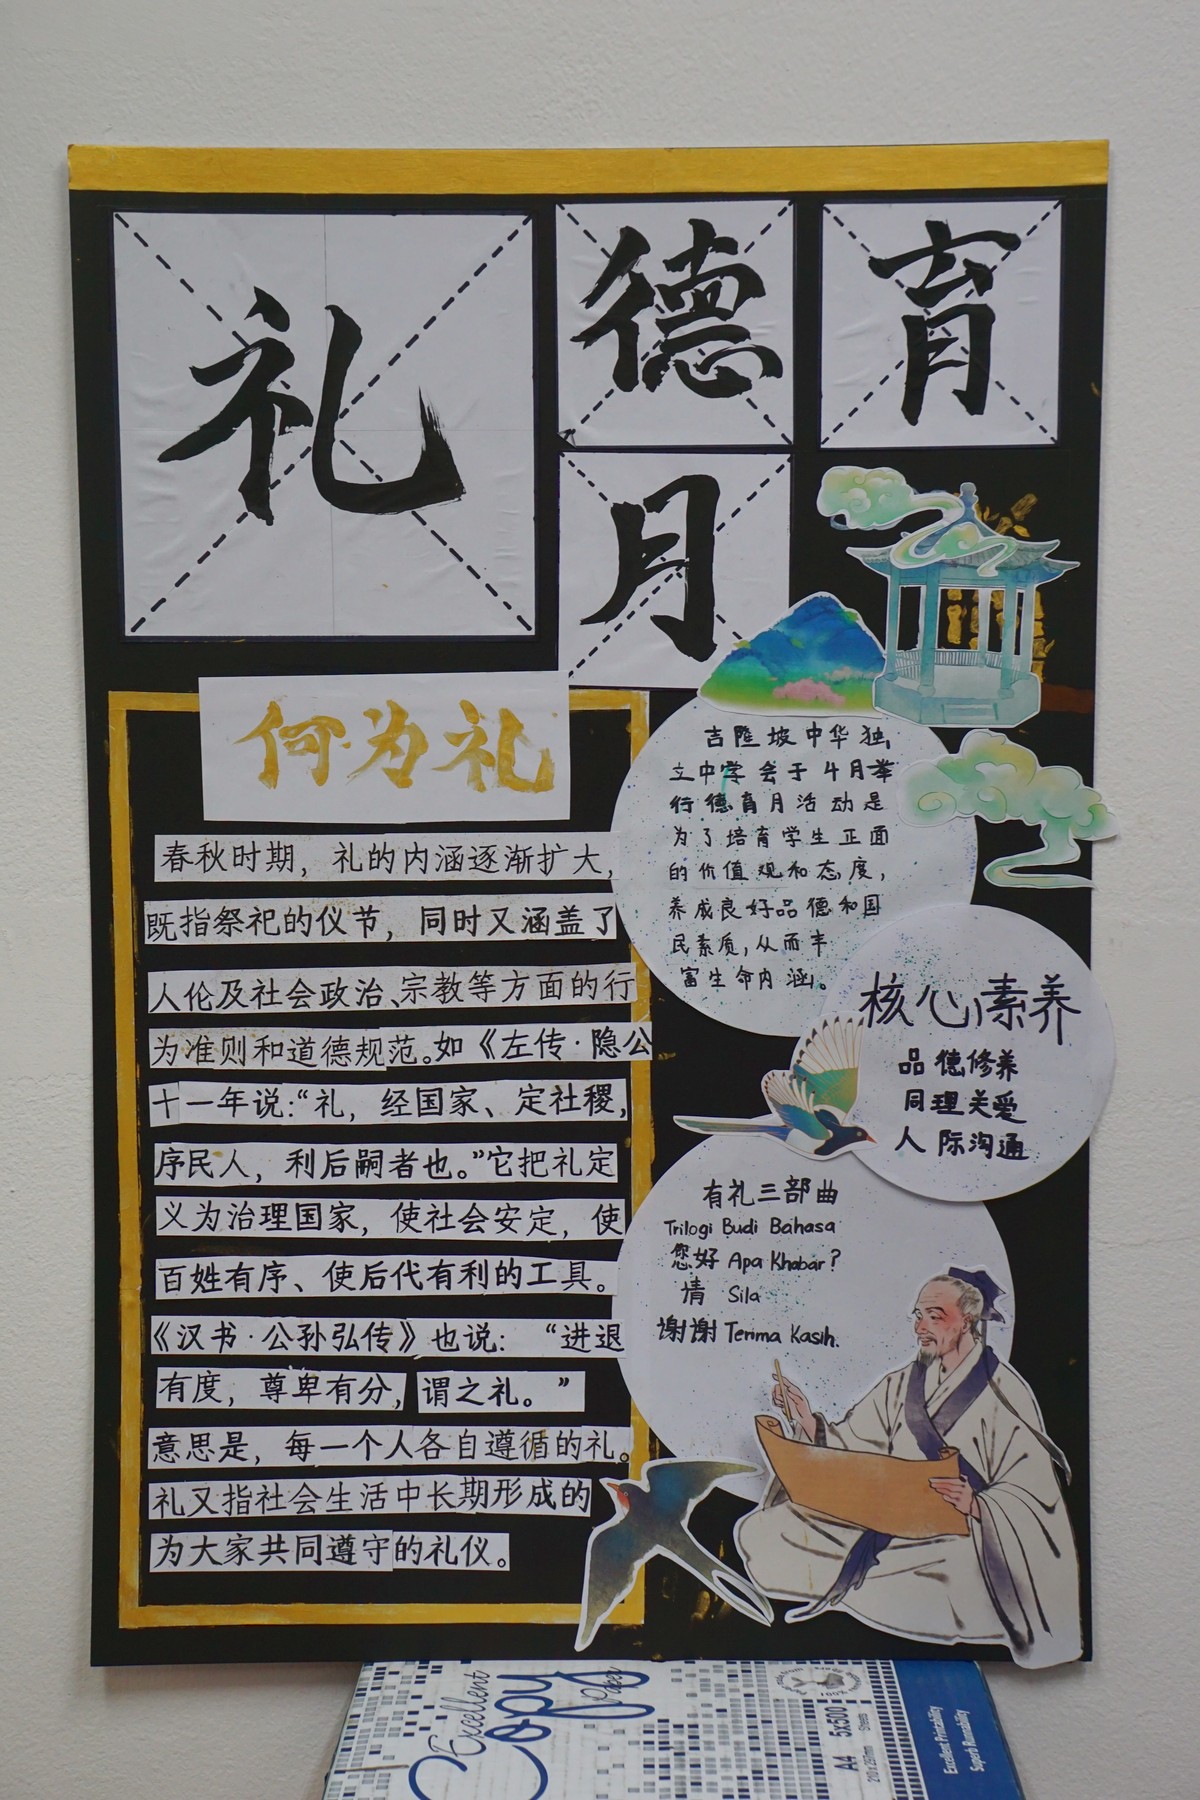 礼
德育
月
何为礼
春秋时期，礼的内涵逐渐扩大，
既指祭祀的仪节，同时又涵盖了
人伦及社会政治、宗教等方面的行
为准则和道德规范。如《左传·隐公
十一年说：“礼，经国家、定社稷，
序民人，利后嗣者也。”它把礼定
义为治理国家，使社会安定，使
百姓有序、使后代有利的工具。
《汉书·公孙弘传》也说：“进退
有度，尊卑有分，谓之礼。”
意思是，每一个人各自遵循的礼。
礼又指社会生活中长期形成的
为大家共同遵守的礼仪。
吉隆坡中华独
立中学会于4月举
行德育月活动是
为了培育学生正面
的价值观和态度，
养成良好品德和国
民素质，从而丰
富生命内涵。
核心素养
品德修养
同理关爱
人际沟通
有礼三部曲
Trilogi Budi Bahasa
您好 Apa Khabar?
Sila
谢谢 Terima Kasih.
Excellent
Copy
Paper
A4 5x500
210x297mm Sheets
Excellent Printability
Superb Runnability